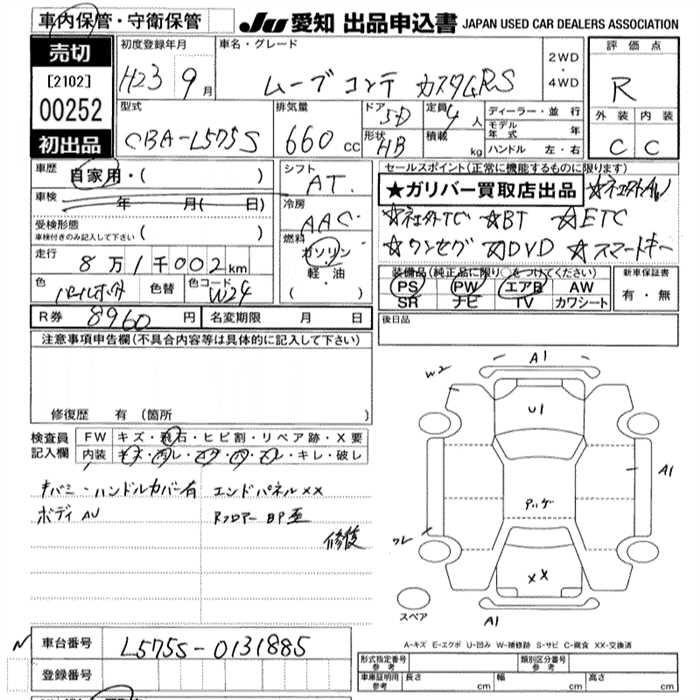 車内保管・守衛保管
Ju 愛知 出品申込書 JAPAN USED CAR DEALERS ASSOCIATION
売切
[2102]
00252
初出品
初度登録年月
H23 9月
車名・グレード
ムーブ コンテ カスタムRS
2WD
・
4WD
評価点
R
外装 内装
C C
型式
CBA-L575S
排気量
660cc
ドア
5D
形状
HB
定員
4人
積載
kg
ディーラー・並行
モデル年式 年
ハンドル 左・右
車歴
自家用・( )
車検
年 月( 日)
受検形態
車検付きのみ記入して下さい ( )
走行
8万1千002km
色
パールホワイト
色替
色コード
W24
シフト
AT.
冷房
AAC.
燃料
ガソリン
軽油
・( )
セールスポイント(正常に機能するものに限ります)
★ガリバー買取店出品 ☆社外AW
☆社外TC ☆BT ☆ETC
☆ワンセグ ☆DVD ☆スマートキー
装備品(純正品に限り○をつけてください)
PS PW エアB AW
SR ナビ TV カワシート
新車保証書
有・無
R券 8960円 名変期限 月 日
後日品
注意事項申告欄(不具合内容等は具体的に記入して下さい)
修復歴 有 (箇所 )
検査員
記入欄
FW キズ・飛石・ヒビ割・リペア跡・X要
内装 キズ・汚レ・コゲ・穴・スレ・キレ・破レ
キバミ・ハンドルカバー有
ボディ AU
エンドパネル××
Rフロアー BP歪
修復
W2
A1
U1
A1
××
A1
スペア
A-キズ E-エクボ U-凹み W-補修跡 S-サビ C-腐食 XX-交換済
車台番号 L575S-0131885
登録番号
形式指定番号
参考
類別区分番号
参考
車庫証明用
参考
長さ cm 幅 cm 高さ cm